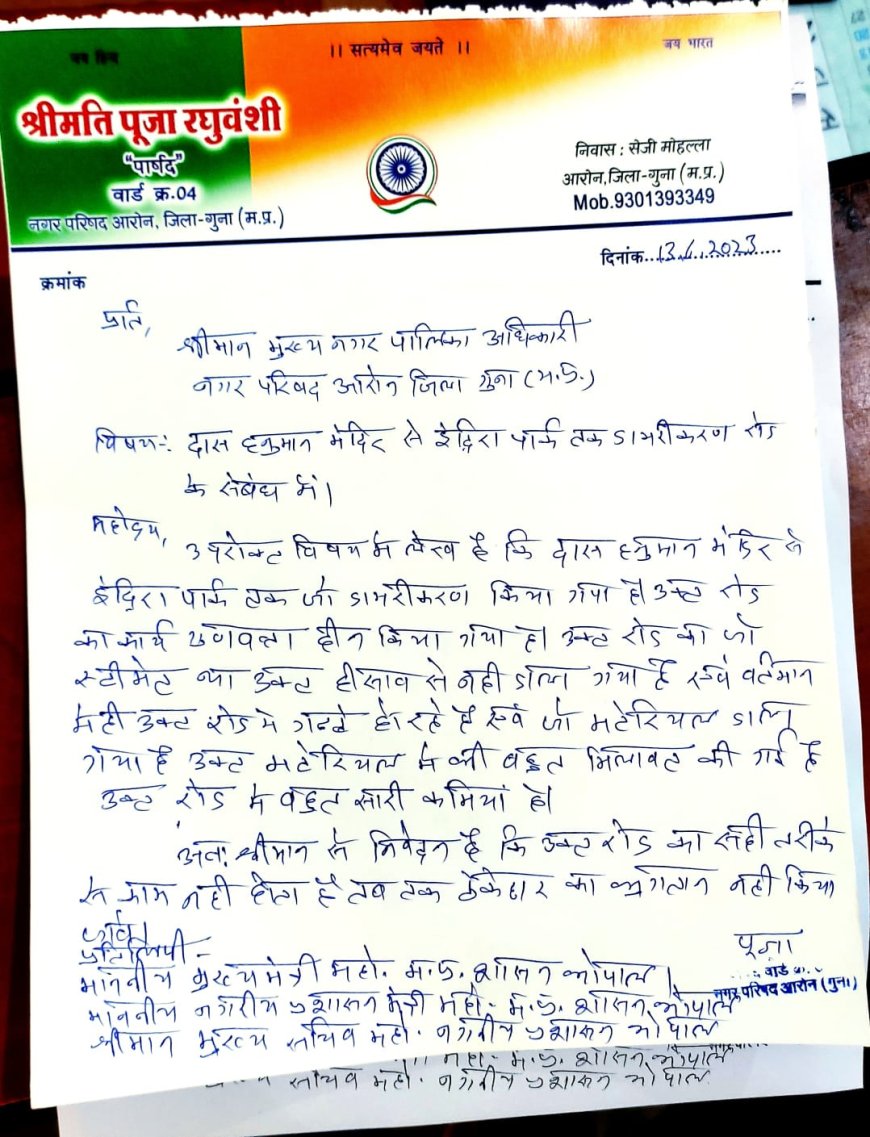 जय हिन्द
।। सत्यमेव जयते ।।
जय भारत
श्रीमति पूजा रघुवंशी
"पार्षद"
वार्ड क्र.04
नगर परिषद आरोन, जिला-गुना (म.प्र.)
निवास : सेजी मोहल्ला
आरोन,जिला-गुना (म.प्र.)
Mob.9301393349
दिनांक...13.6.2023....
क्रमांक
प्रति,
श्रीमान मुख्य नगर पालिका अधिकारी
नगर परिषद आरोन जिला गुना (म.प्र.)
विषय:- दास हनुमान मंदिर से इंदिरा पार्क तक डामरीकरण रोड
के संबंध में।
महोदय,
उपरोक्त विषय में लेख है कि दास हनुमान मंदिर से
इंदिरा पार्क तक जो डामरीकरण किया गया है। उक्त रोड
का कार्य गुणवत्ता हीन किया गया है। उक्त रोड का जो
स्टीमेट था उक्त हीसाव से नही डाला गया है एवं वर्तमान
मे ही उक्त रोड मे गढढे हो रहे है एवं जो मटेरियल डाला
गया है उक्त मटेरियल मे भी बहुत मिलावट की गई है
उक्त रोड मे बहुत सारी कमियां है।
अतः श्रीमान से निवेदन है कि उक्त रोड का सही तरीके
से काम नही होता है तब तक ठेकेदार का भुगतान नही किया
जावे।
पूजा
वार्ड
नगर परिषद आरोन (गुना)
प्रतिलिपी -
माननीय मुख्य मंत्री महो. म.प्र. शासन भोपाल।
माननीय नगरीय प्रशासन मंत्री महो. म.प्र. शासन भोपाल
श्रीमान मुख्य सचिव महो. नगरीय प्रशासन भोपाल
महो. म.प्र. शासन भोपाल
सचिव महो. नगरीय प्रशासन भोपाल